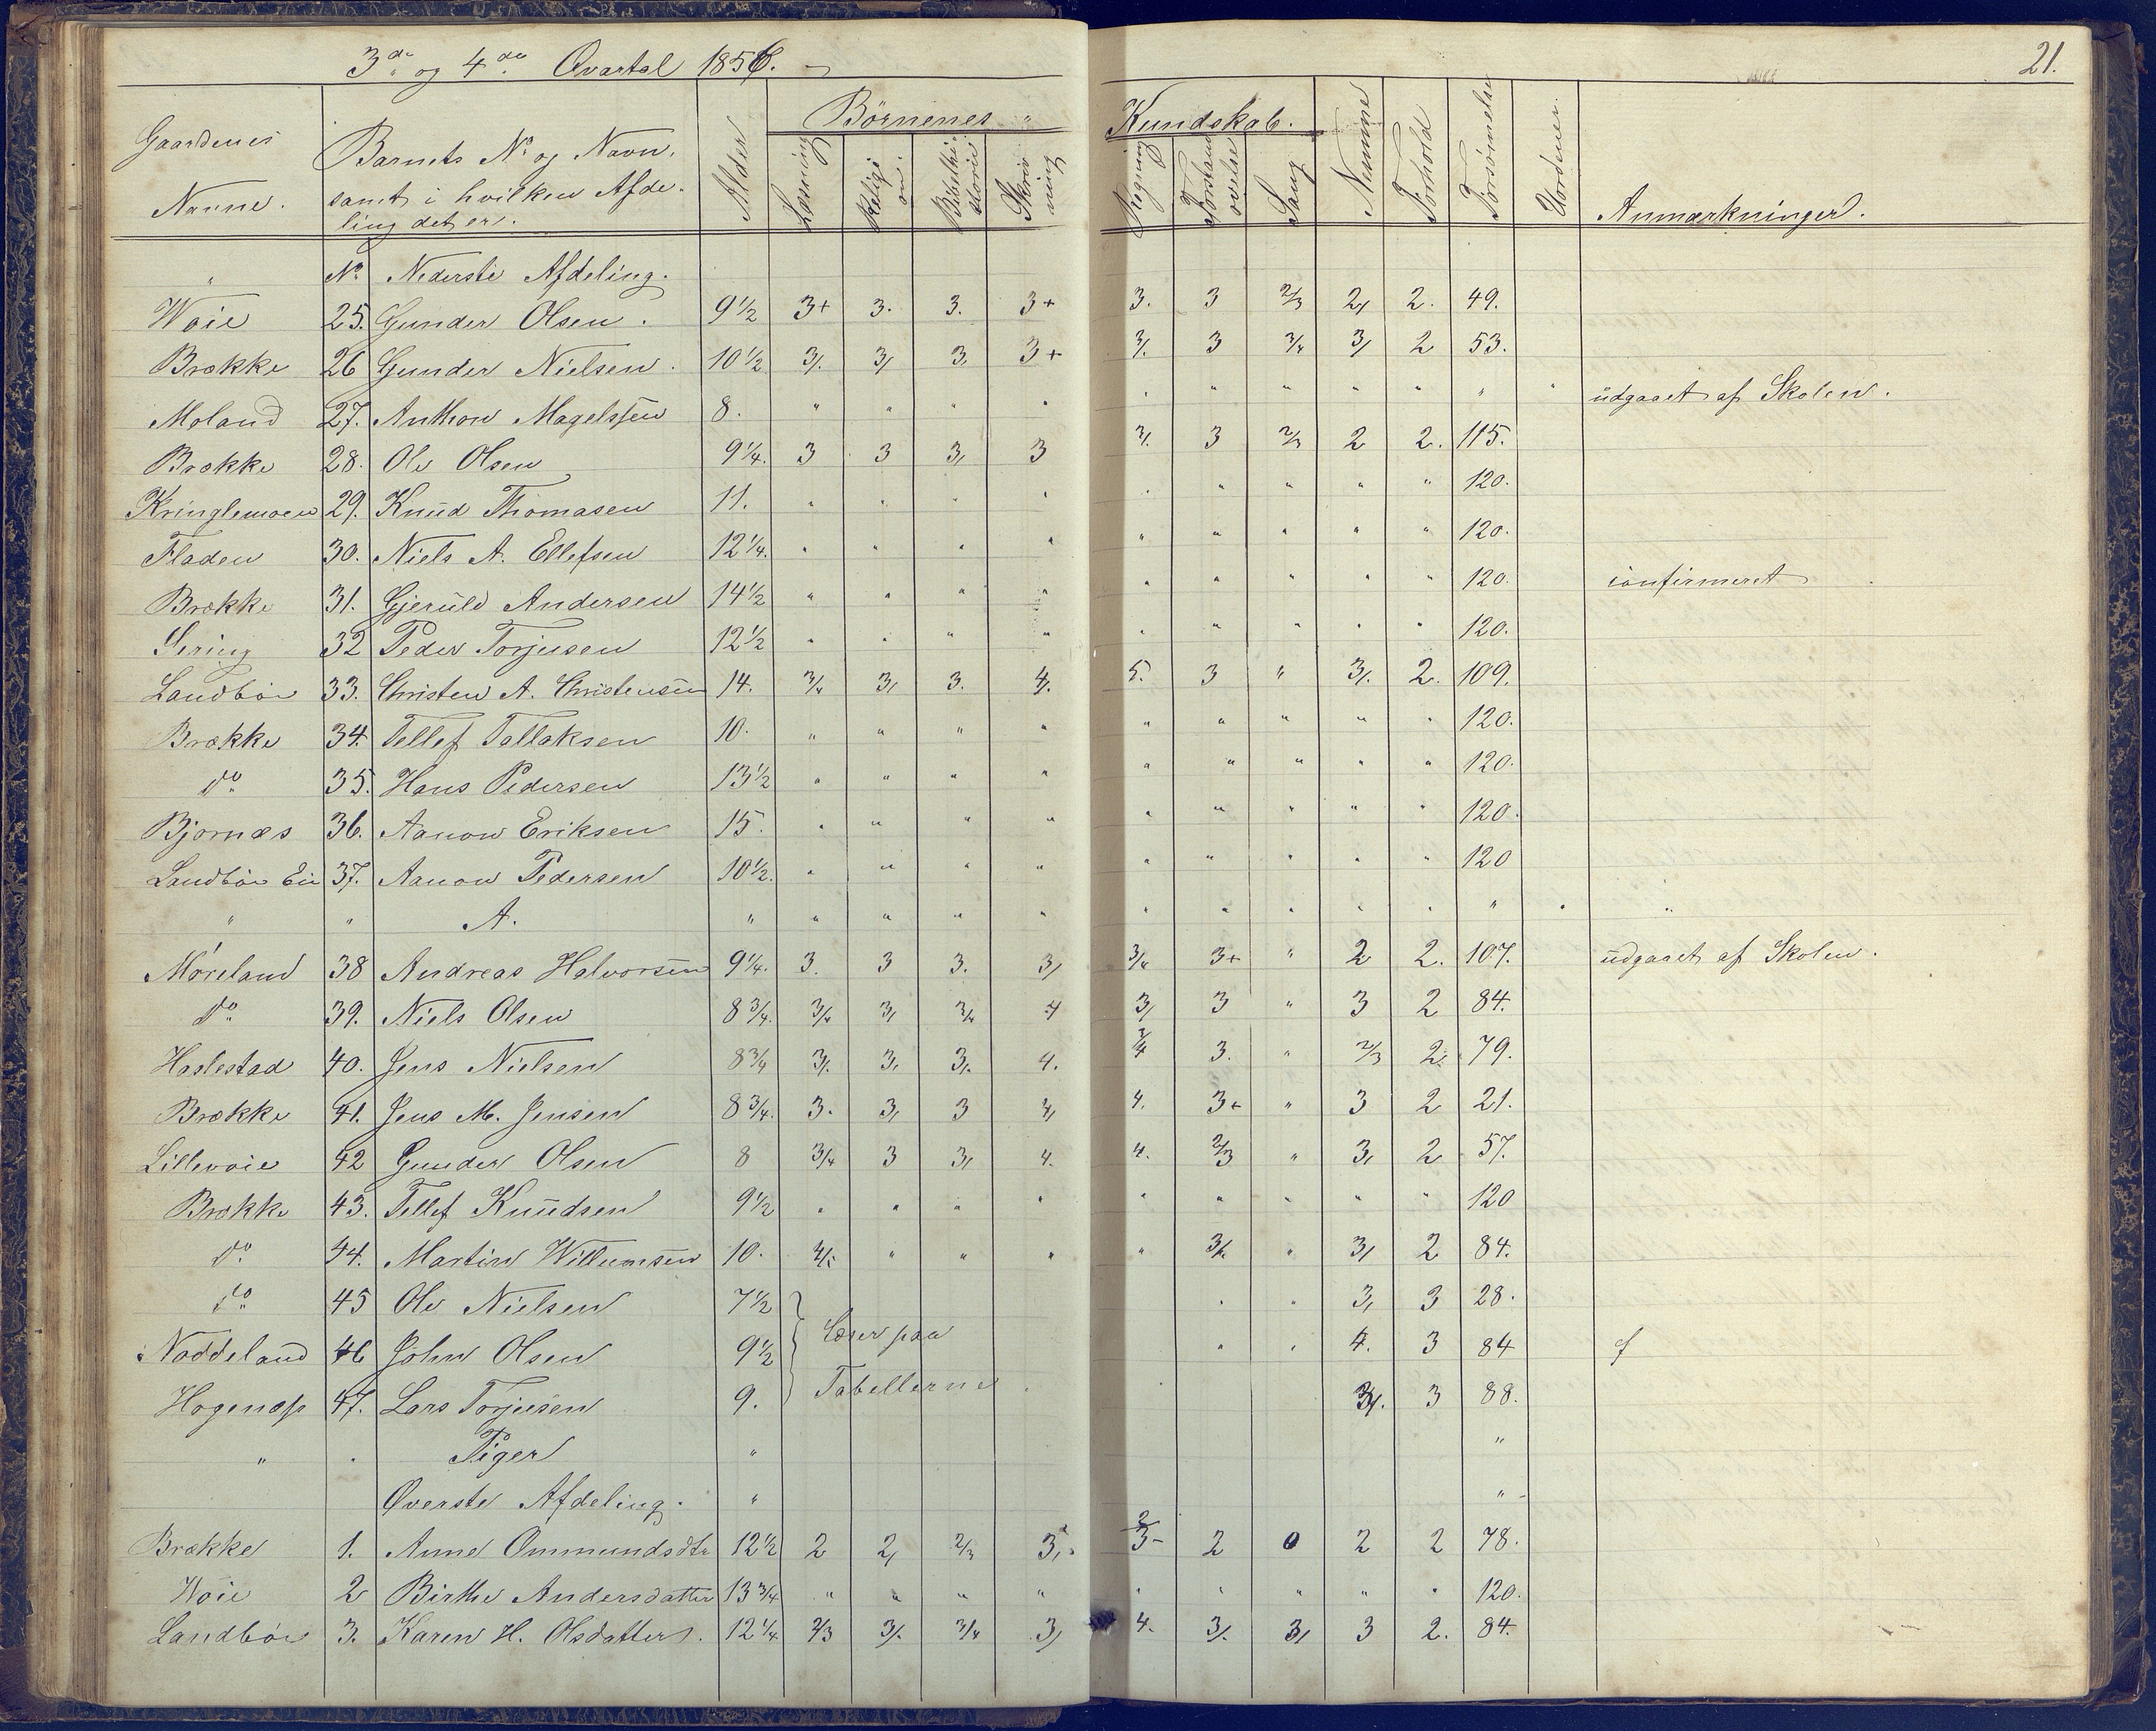 3de og 4de Qvartal 1856.
21.
Gaardenes Navne.
Barnets No og Navn, samt i hvilken Afdeling det er.
Alder
Børnenes
Kundskab.
Læsning
Religion
Bibelhistorie
Skrivning
Regning
Forstandsøvelse
Sang
Nemme
Forhold
Forsømmelse
Uordner.
Anmærkninger.
" No Nederste Afdeling.
Woie 25. Gunder Olsen. 9 1/2 3+ 3. 3. 3+ 3. 3 2/3 2, 2. 49.
Brække 26 Gunder Nielsen. 10 1/2 3/. 3, 3, 3+ 3/. 3 3/4 3, 2 53.
Moland 27. Anthon Magelssen 8. " " " " " " " " " " " udgaaet af Skolen.
Brække 28. Ole Olsen 9 1/4. 3 3 3, 3 3/. 3 2/3 2 2. 115.
Kringlemoen 29. Knud Thomasen 11. " " " " " " " " " 120.
Fladen 30. Niels A. Ellefsen 12 1/4. " " " " " " " " " 120.
Brække 31. Gjeruld Andersen 14 1/2 " " " " " " " " " 120. confirmeret
32 Peder Torjusen 12 1/2 " " " " " " " " " 120.
Landbøe 33. Christen A. Christensen 14. 3/4 3, 3. 4/. 5. 3 " 3/. 2. 109.
Brække 34. Tellef Tallaksen 10. " " " " " " " " " 120.
do 35. Hans Pedersen 13 1/2 " " " " " " " " " 120.
Bjornæs 36. Aanon Eriksen 15. " " " " " " " " " 120.
Landbøe Eie 37. Aanon Pedersen 10 1/2. " " " " " " " " " 120
" " A. " " " " " " " " " " " " "
Møreland 38 Andreas Halvorsen 9 1/4. 3. 3 3. 3, 3/4 3+ " 2 2. 107. udgaaet af Skolen.
do 39. Niels Olsen 8 3/4. 3/4 3, 3/4 4 3, 3 " 3 2 84.
Haslestad 40. Jens Nielsen 8 3/4 3/. 3, 3/. 4. 3/4 3. " 2/3 2. 79.
Brække 41. Jens M. Jensen 8 3/4. 3. 3, 3 4, 4. 3+ " 3 2 21.
Lillevoie 42 Gunder Olsen 8 3/4 3 3, 4. 4. 2/3 " 3, 2 57.
Brække 43. Tellef Knudsen 9 1/2 " " " " " " " " " 120
do 44. Martin Willumsen 10. 4/. " " " " 3/4 " 3, 2 84.
do 45 Ole Nielsen 7 1/2 " " 3, 3 28.
Noddeland 46 John Olsen 9 1/2 Læser paa " " 4. 3 84
47. Lars Torjusen 9. Tabellerne 3/. 3 88.
" " Piger " "
Øverste Afdeling. " "
Brække 1. Anne Ommundsdtr 12 1/2 2 2, 2/3 3, 2/3 2 0 2 2 78.
Woie 2 Birthe Andersdatter 13 3/4 " " " " " " " " " 120.
Landbøe 3. Karen H. Olsdatter. 12 1/4 2/3 3/. 3/4 3, 4. 3/. 3, 3 2. 84.